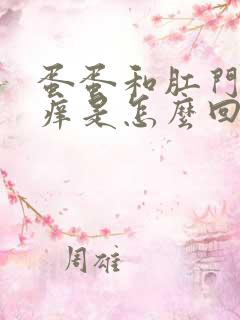 蛋蛋和肛門
癢是怎麼回
周雄